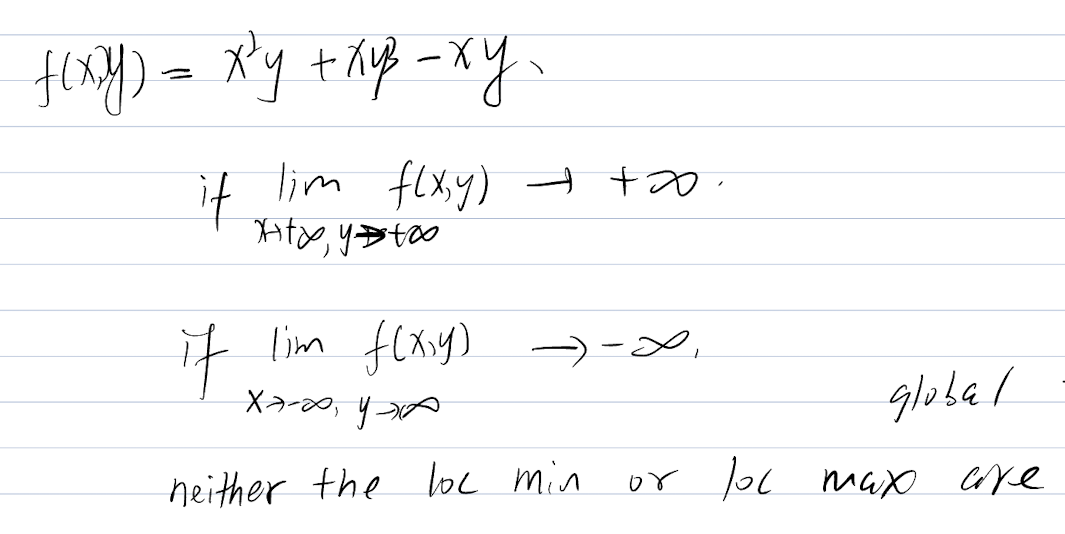 f(x,y) = x²y + xy³ - xy.
if lim f(x,y) → +∞.
x→+∞, y→+∞
if lim f(x,y) → -∞,
x→-∞, y→∞
global
neither the loc min or loc max are